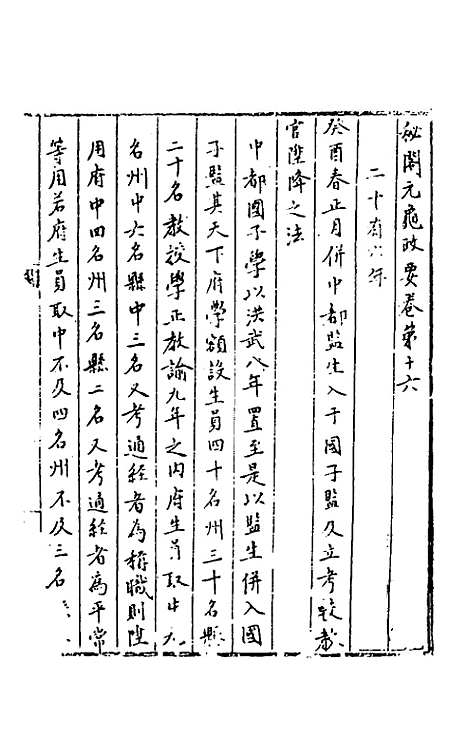 秘閣元龜政要卷第十六
二十有六年
癸酉春正月併中都監生入于國子監及立考較教
官陞降之法
中都國子學以洪武八年置至是以監生併入國
子監其天下府學額設生員四十名州三十名縣
二十名教授學正教諭九年之內府生員取中九
名州中六名縣中三名又考通經者為稱職則陞
用府中四名州三名縣二名又考通經者為平常
等用若府生員取中不及四名州不及三名